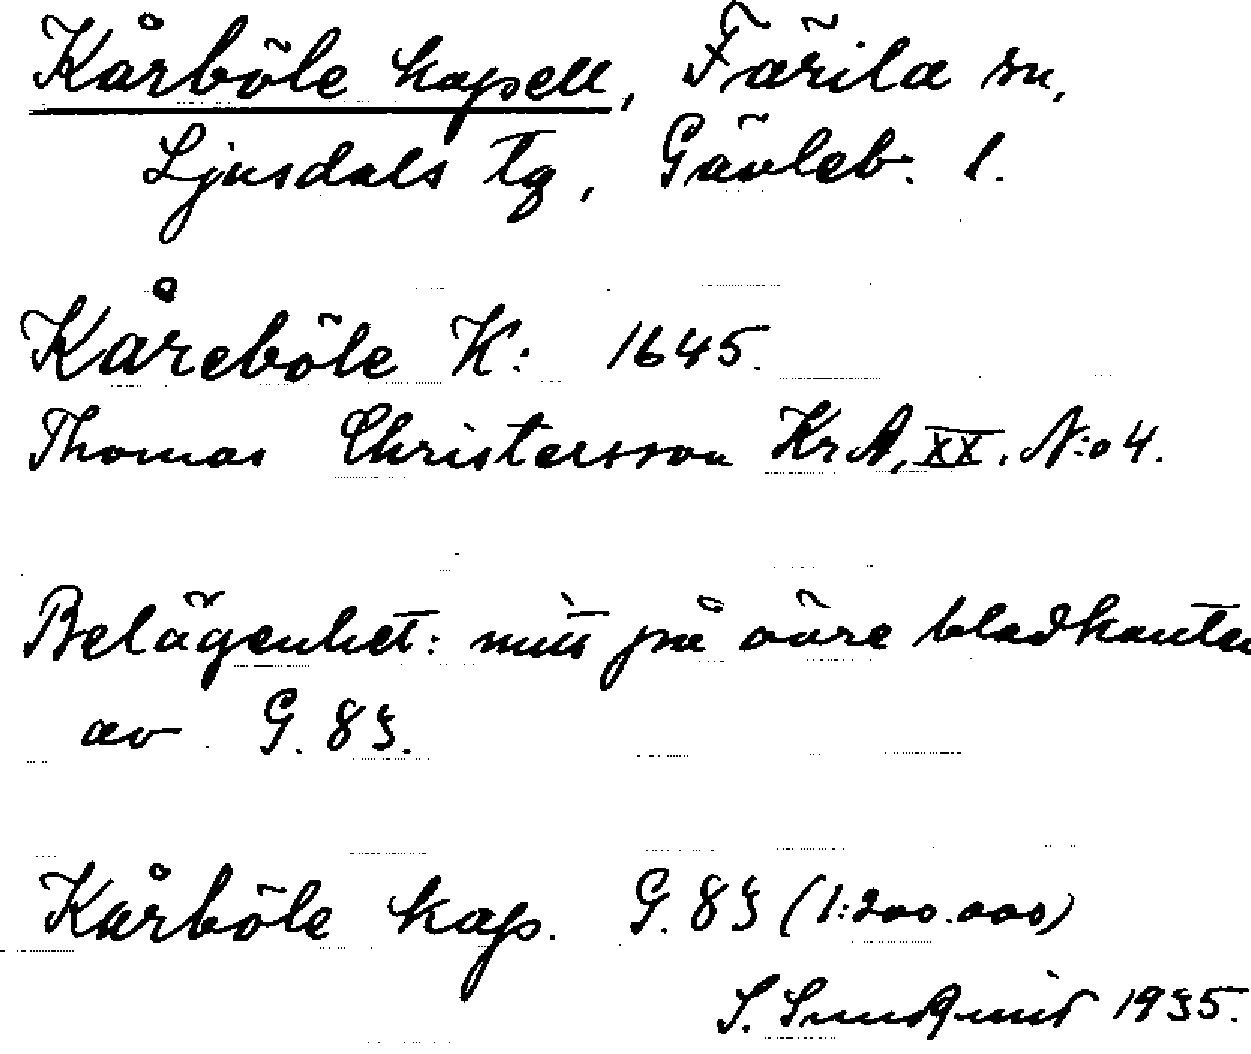 Kårböle kapell, Färila sn,
Ljusdals tg, Gävleb. l.
Kåreböle K: 1645.
Thomas Christersson KrA, XX. N:o 4.
Belägenhet: mitt på övre bladkanten
av G. 83.
Kårböle kap. G. 83 (1:200.000)
S. Sundqvist 1935.